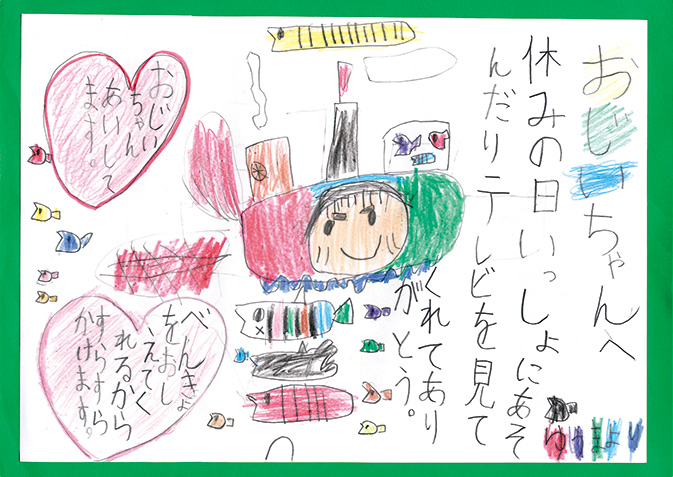 おじいちゃんへ
休みの日いっしょにあそ
んだりテレビを見て
くれてあり
がとう。
おじい
ちゃん
あいして
ます。
べんきょ
をおし
えてく
れるから
すらすら
かけます。